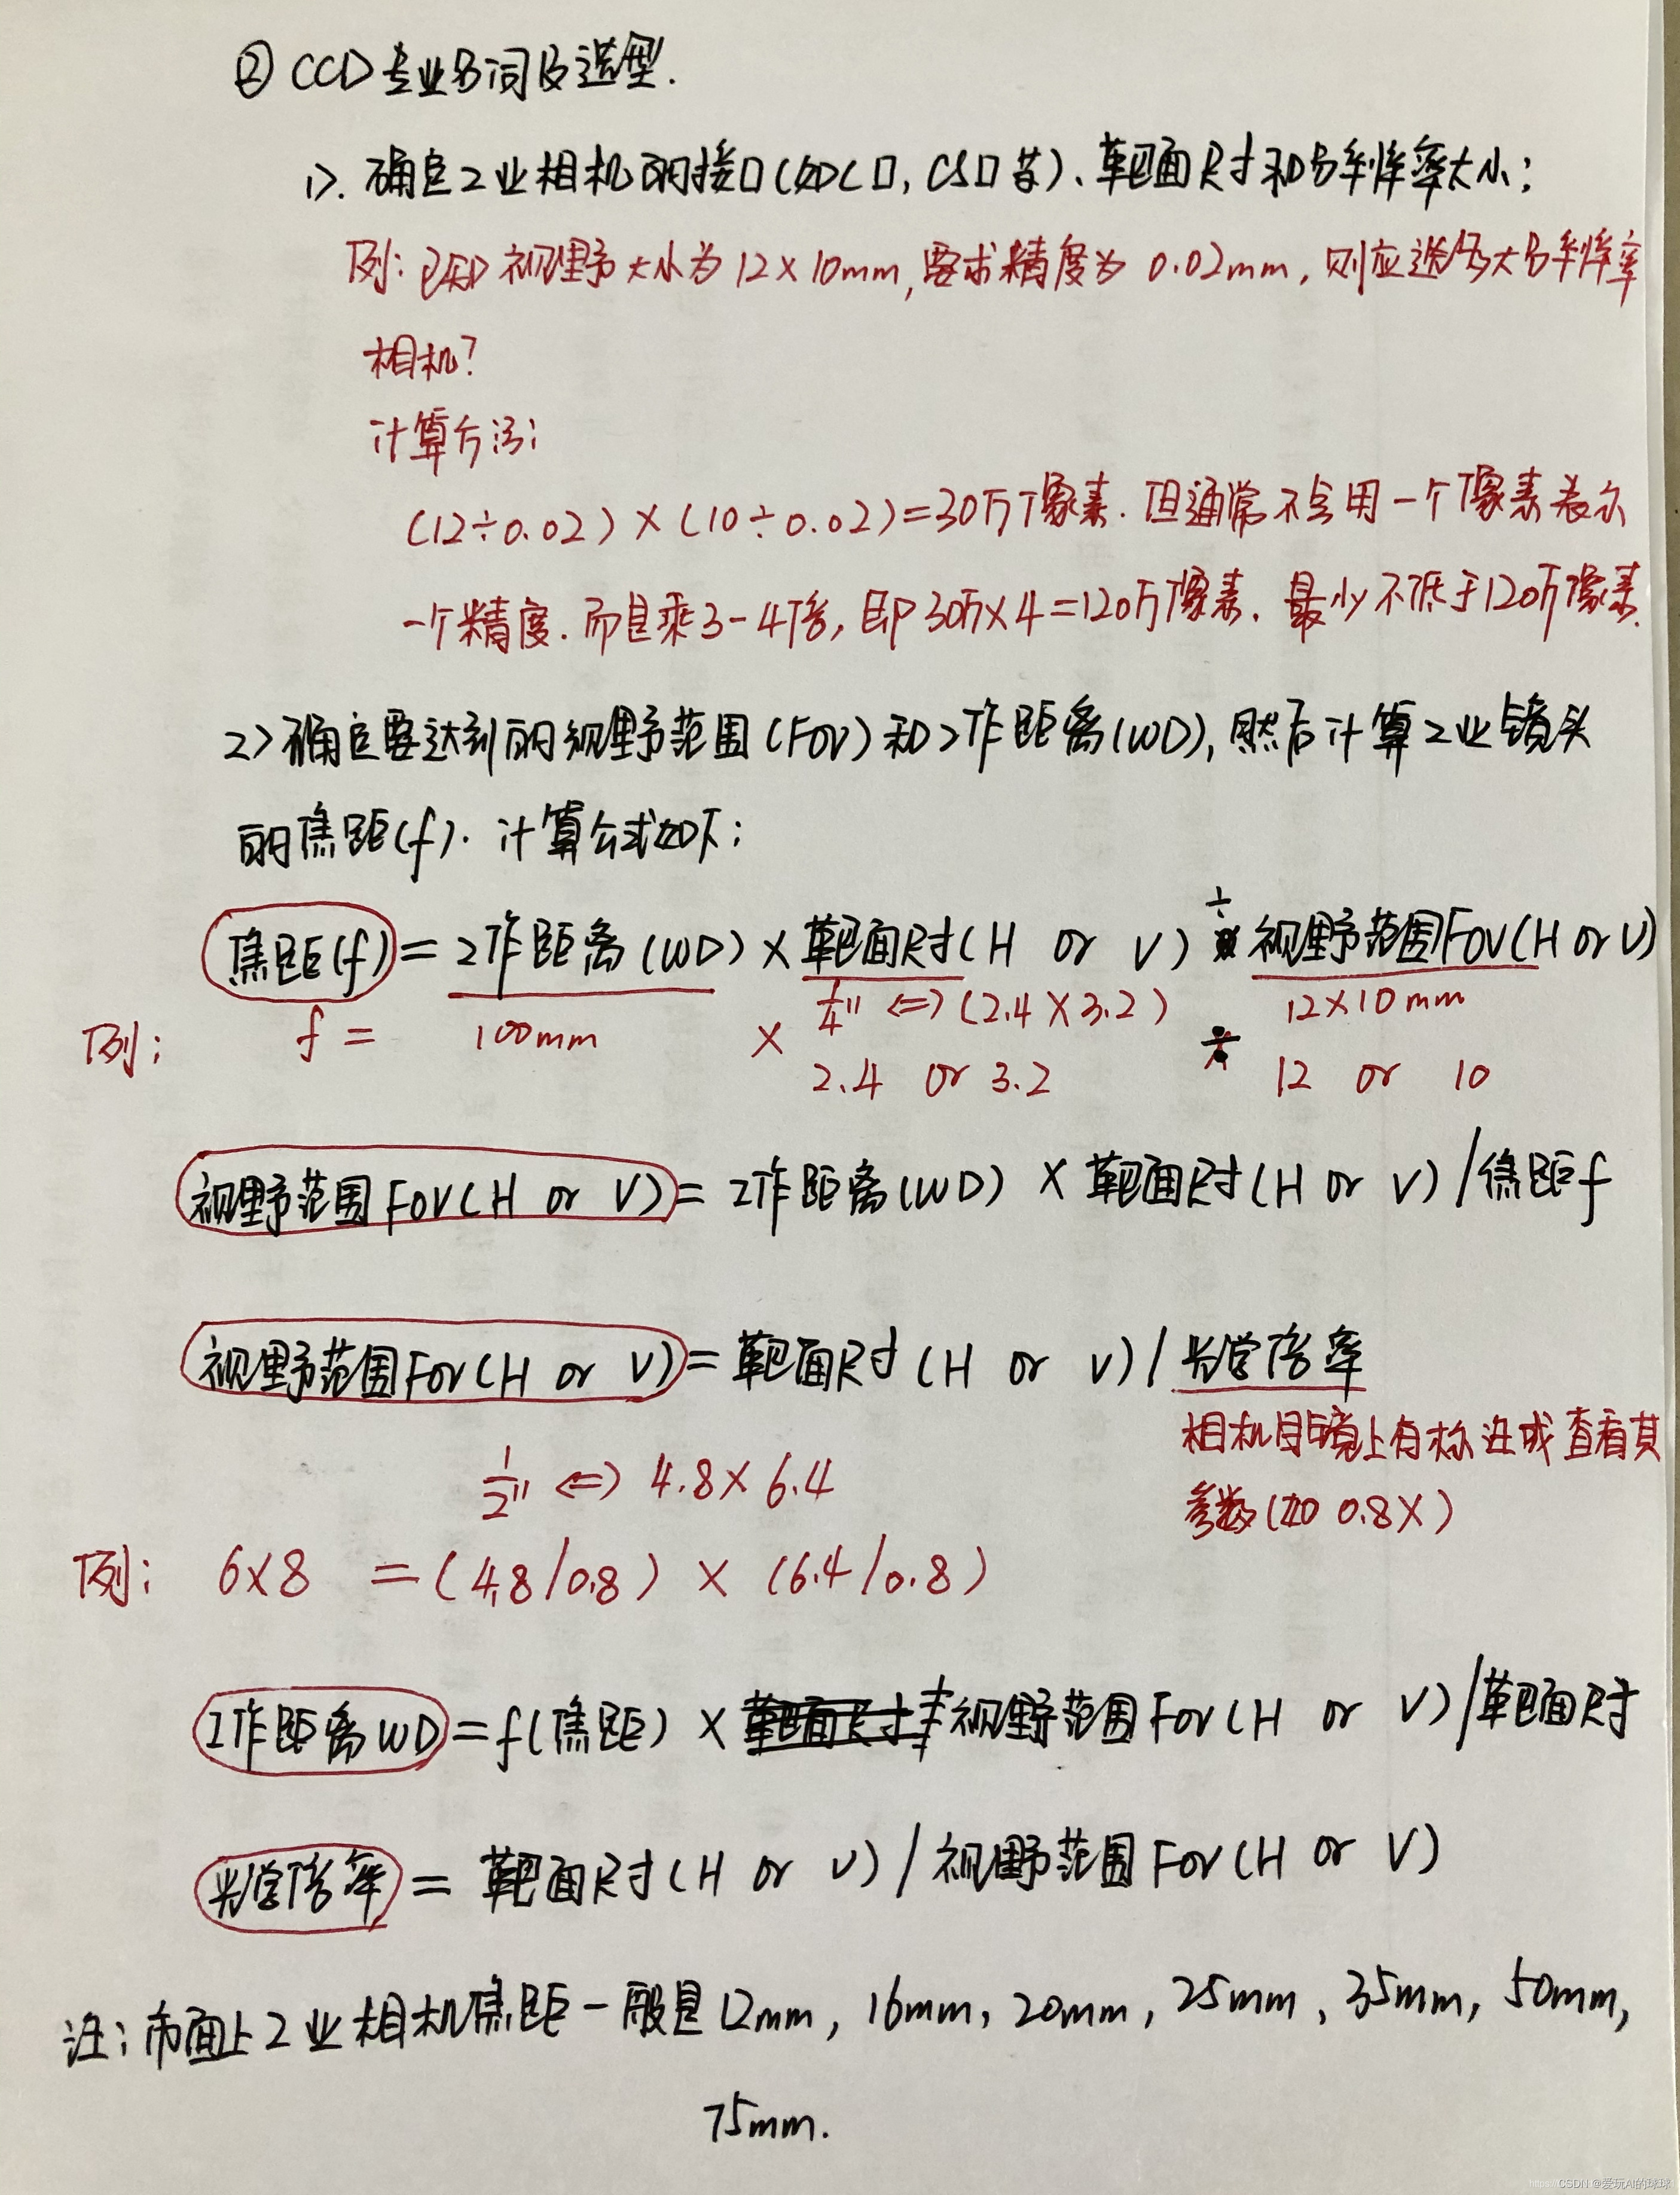 ② CCD专业名词及选型.
1>. 确定工业相机的接口(如C口, CS口等)、靶面尺寸和分辨率大小;
例: 已知视野大小为12×10mm, 要求精度为 0.02mm, 则应选多大分辨率
相机?
计算方法:
(12÷0.02)×(10÷0.02)=30万像素. 但通常不会用一个像素表示
一个精度. 而是乘3-4倍, 即30万×4=120万像素. 最少不低于120万像素.
2>确定要达到的视野范围(FOV)和工作距离(WD), 然后计算工业镜头
的焦距(f). 计算公式如下:
焦距(f)=工作距离(WD)×靶面尺寸(H or V)÷视野范围FOV(H or V)
1/4" <=> (2.4×3.2) 12×10mm
例: f = 100mm × 2.4 or 3.2 ÷ 12 or 10
视野范围FOV(H or V)=工作距离(WD) × 靶面尺寸(H or V)/焦距f
视野范围FOV(H or V)=靶面尺寸(H or V)/光学倍率
相机目镜上有标注或查看其
参数(如0.8X)
1/2" <=> 4.8×6.4
例: 6×8 =(4.8/0.8) × (6.4/0.8)
工作距离WD=f(焦距)×视野范围FOV(H or V)/靶面尺寸
光学倍率=靶面尺寸(H or V)/视野范围FOV(H or V)
注: 市面上工业相机焦距一般是12mm, 16mm, 20mm, 25mm, 35mm, 50mm,
75mm.
CSDN @爱玩AI的球球